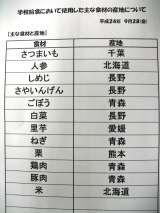 学校給食において使用した主な食材の産地について
平成24年 9月28(金)
【主な食材と産地】
食材 産地
さつまいも 千葉
人参 北海道
しめじ 長野
さやいんげん 長野
ごぼう 青森
白菜 長野
里芋 愛媛
ねぎ 青森
栗 熊本
鶏肉 青森
豚肉 青森
米 北海道